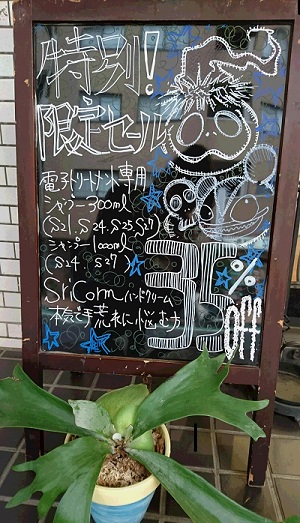 特別!
限定セール
電子トリートメント専用
シャンプー300ml
(S21、S24、S25、S27)
シャンプー1000ml
(S24、S27)
Sr.Comハンドクリーム
手荒れに悩む方
35%off